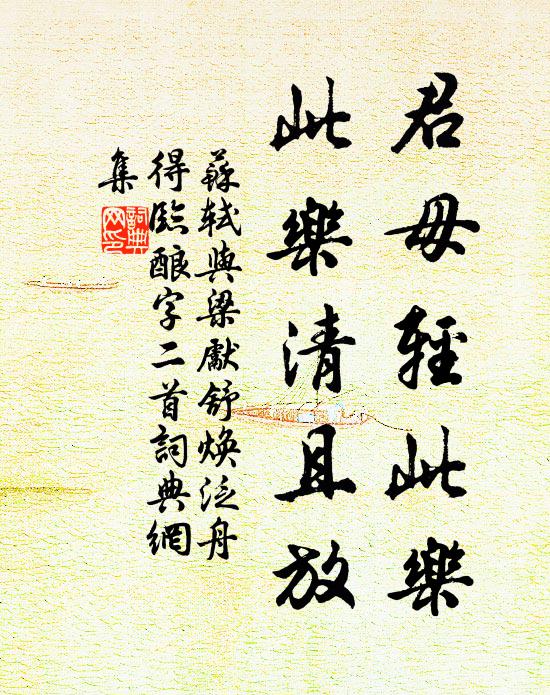 君毋輕此樂
此樂清且放
蘇軾與梁獻舒煥泛舟
得臨釀字二首詞典網
集
詞典
网印